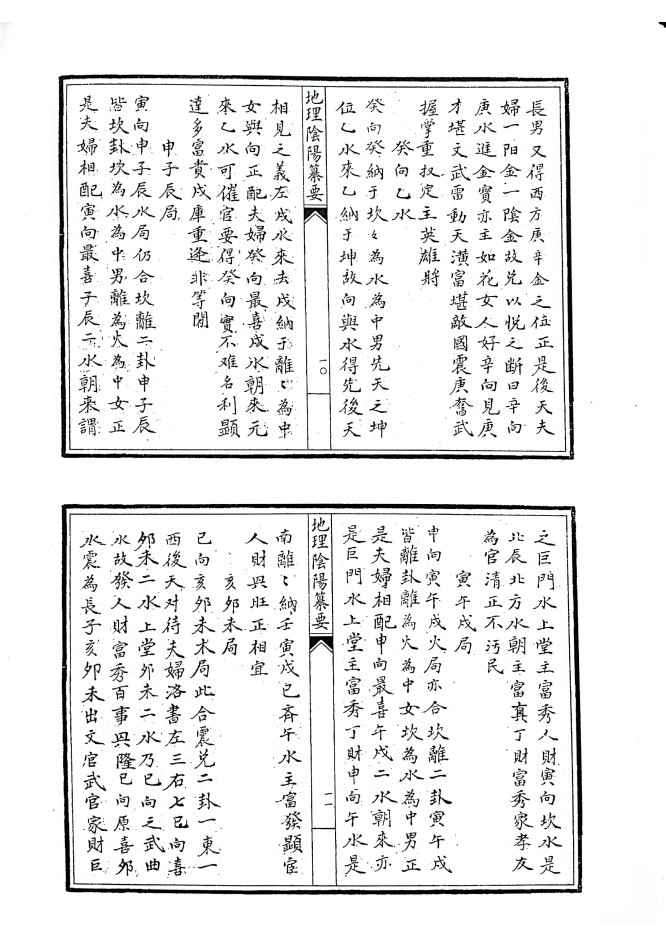 長男又得西方庚辛金之位正是後天夫
婦一阳金一陰金故兑以悦之断曰辛向
庚水進金寳亦主如花女人好辛向見庚
才堪文武雷動天潢富堪敵國震庚奮武
握掌重权定主英雄將
癸向乙水
癸向癸納于坎々為水為中男先天之坤
位乙水來乙納于坤故向與水得先後天
地理陰陽纂要
一〇
相見之義左戌水來去戌納于離〻為中
女與向正配夫婦癸向最喜戌水朝來元
來乙水可催官要得癸向實不难名利顯
達多富貴戌庫重逢非等閒
申子辰局
寅向申子辰水局仍合坎離二卦申子辰
皆坎卦坎為水為中男離為火為中女正
是夫婦相配寅向最喜子辰二水朝來謂
之巨門水上堂主富秀人財寅向坎水是
北辰北方水朝主富真丁財富秀家孝友
為官清正不污民
寅午戌局
申向寅午戌火局亦合坎離二卦寅午戌
皆離卦離為火為中女坎為水為中男正
是夫婦相配申向最喜午戌二水朝來亦
是巨門水上堂主富秀丁財申向午水是
地理陰陽纂要
一一
南離〻納壬寅戌已斉午水主富發顯宦
人財興旺正相宜
亥夘未局
已向亥夘未木局此合震兑二卦一東一
西後天对待夫婦洛書左三右七已向喜
夘未二水上堂夘未二水乃已向之武曲
水故發人財富秀百事興隆已向原喜夘
水震為長子亥夘未出文官武官家財巨